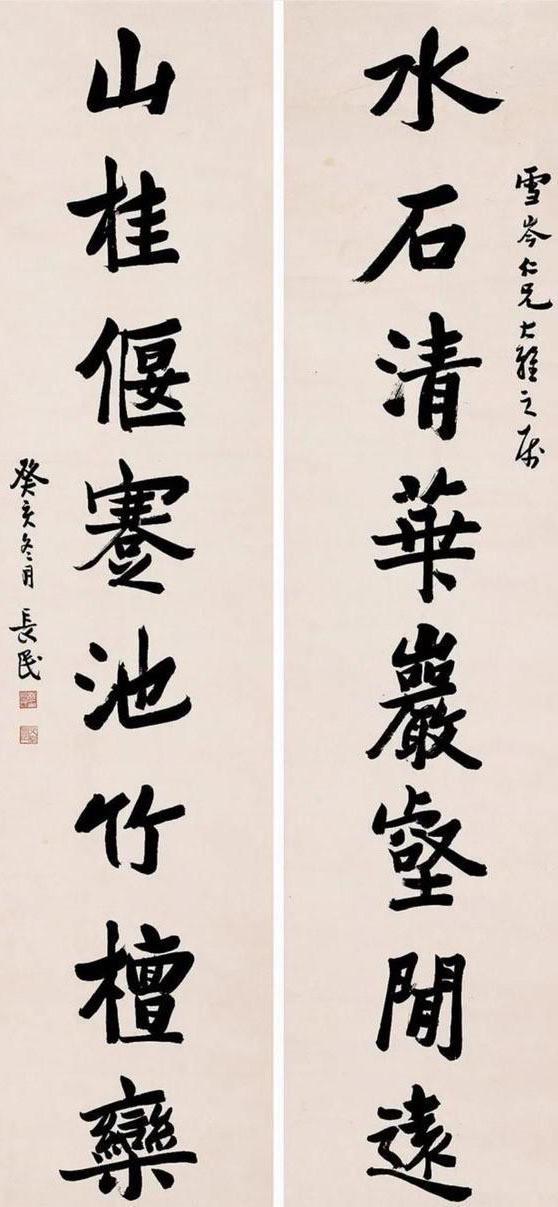 雪岑仁兄大雅之属
水石清華巖壑閒遠
山桂偃蹇池竹檀欒
癸亥冬月 長民